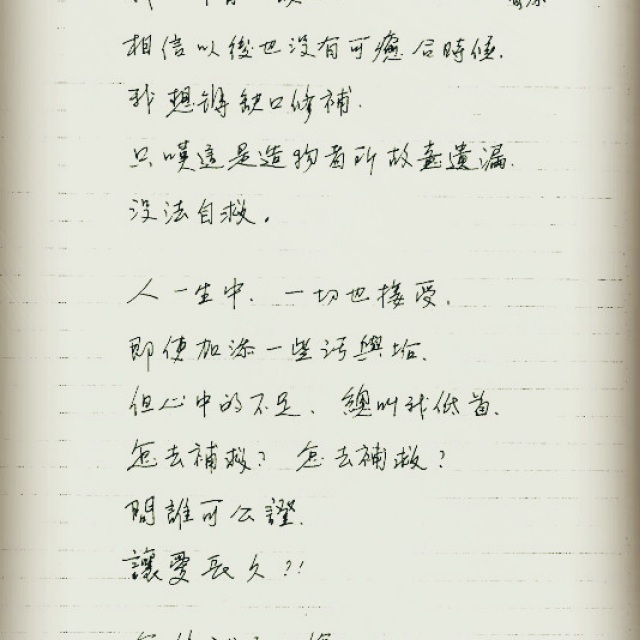 相信以後也沒有可癒合時候.
我想將缺口修補.
只嘆這是造物者所故意遺漏.
沒法自救。
人一生中. 一切也接受.
即使加添一些污與垢.
但心中的不足. 總叫我低首.
怎去補救? 怎去補救?
問誰可公證.
讓愛長久?!